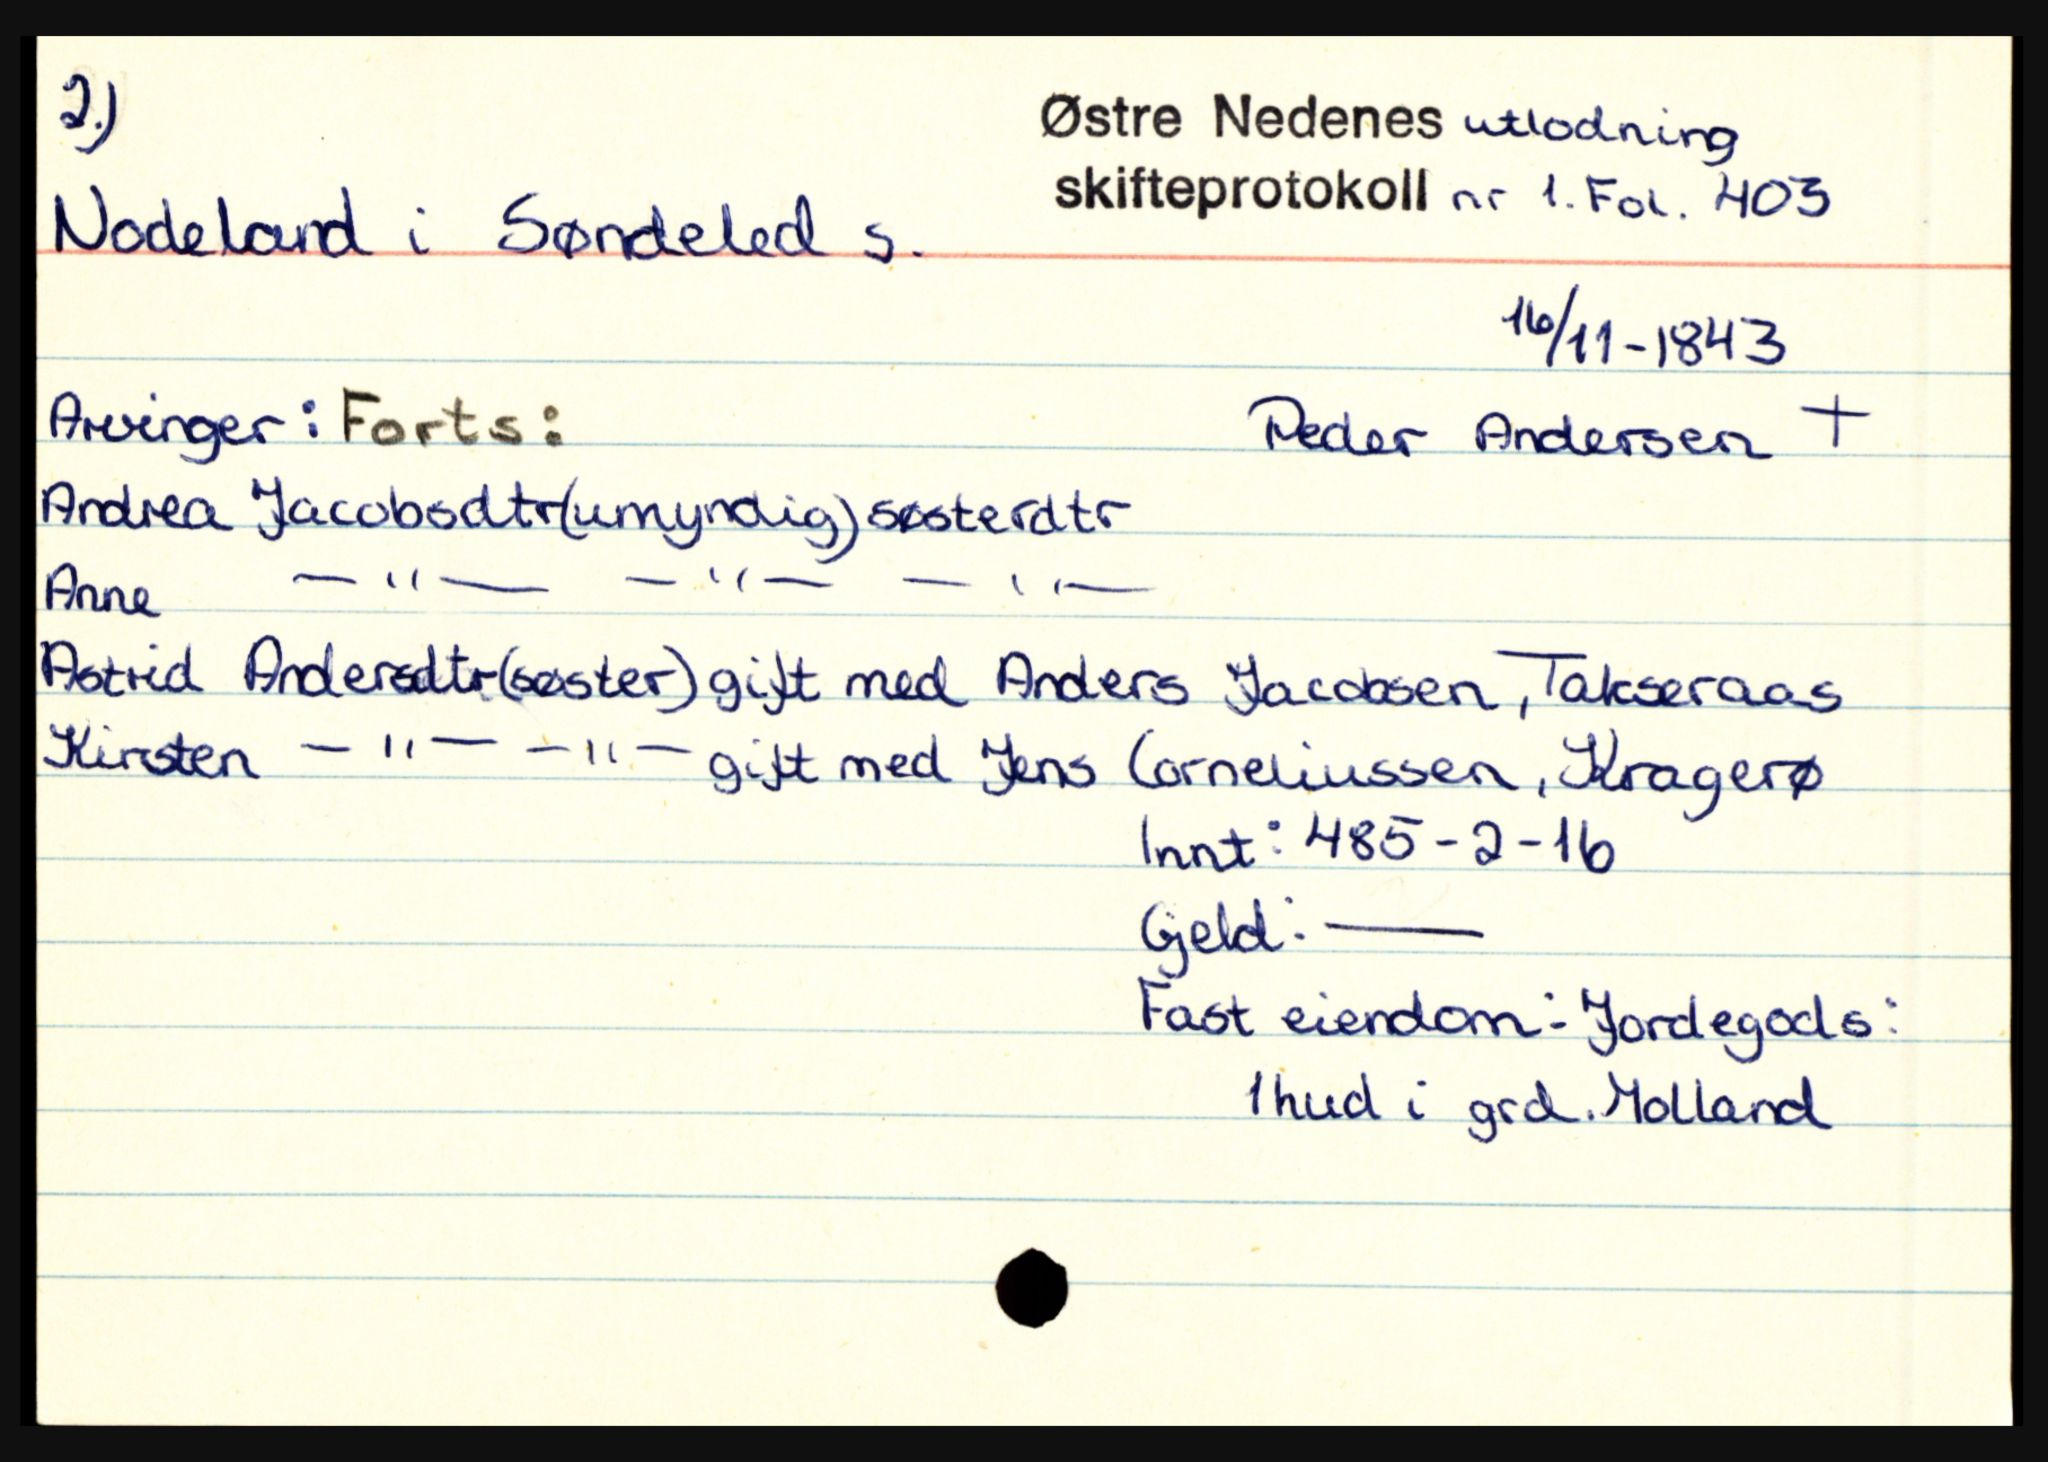 2.)
Østre Nedenes utlodning
skifteprotokoll nr 1. Fol. 403
Nodeland i Søndeled s.
16/11-1843
Arvinger: Forts:
Peder Andersen +
Andrea Jacobsdtr(umyndig) søsterdtr
Anne — " — — " — — " —
Astrid Andersdtr(søster) gift med Anders Jacobsen, Takseraas
Kirsten — " — — " — gift med Jens Corneliussen, Kragerø
Innt: 485-2-16
Gjeld: —
Fast eiendom:- Jordegods:
1 hud i grd. Molland